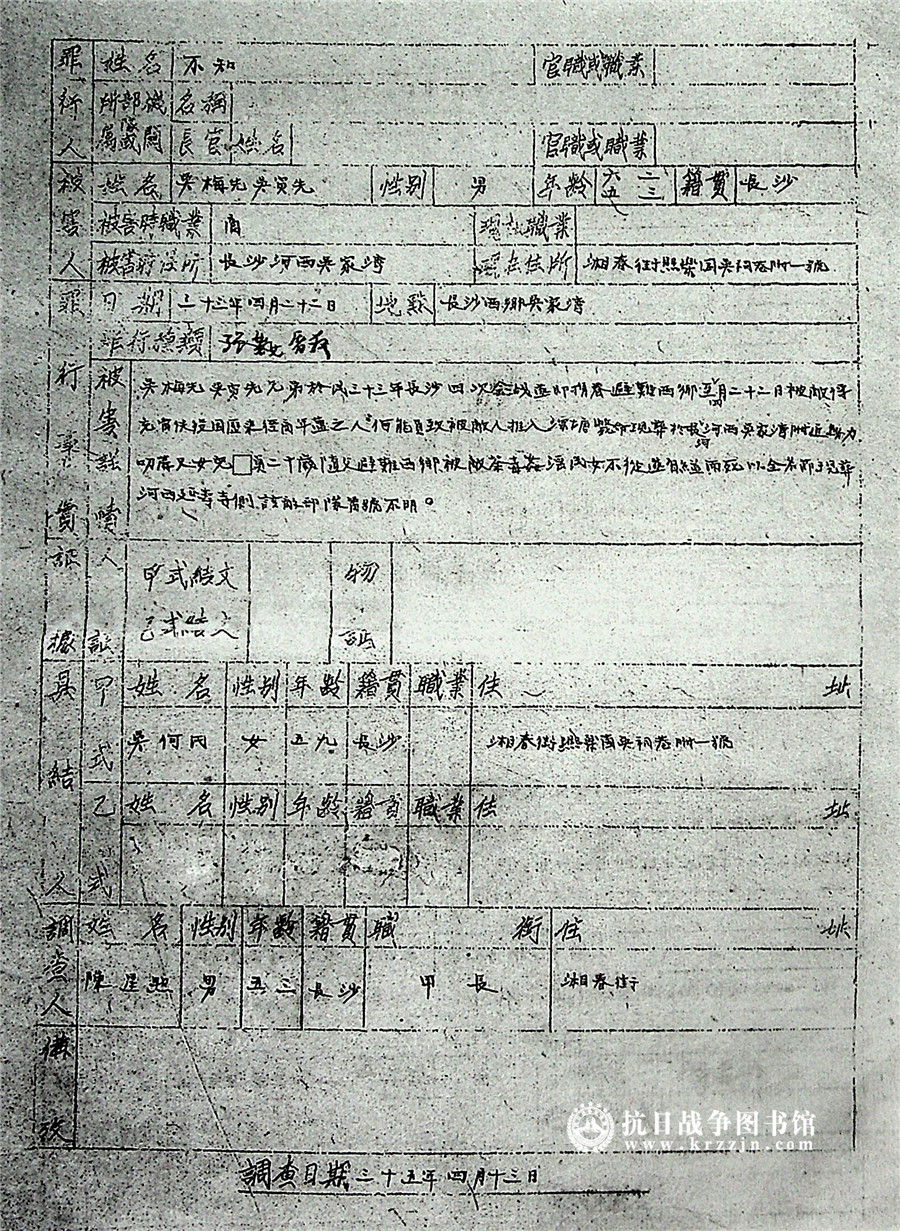 罪行人 姓名 不知 官職或職業
所屬部隊或機關 名稱
長官 姓名 官職或職業
被害人 姓名 吳梅先 吳賓先 性別 男 年齡 六二 五三 籍貫 長沙
被害時職業 商 現在職業
被害時住所 長沙河西吳家灣 現在住所 湘春街熙崇園吳祠巷附一號
罪行事實 日期 三十三年四月二十二日 地點 長沙西鄉吳家灣
罪行種類
被害詳情 吳梅先吳賓先兄弟於民三十三年長沙四次會戰 即携眷避難西鄉 四月二十二日被敵俘
充當伕役因歷來經商年邁之人何能負 被敵人推入 塘斃命現葬於 河河西吳家灣附近
又女兒□ 二十歲隨父避難西鄉被敵 民女不從 而死以全名節現葬
河西 寺側該敵部隊番號不明。
証據 人証 甲式結文 乙式結人 物証
具結人 甲式 姓名 性別 年齡 籍貫 職業 住址
吳何氏 女 五九 長沙 湘春街熙崇園吳祠巷附一號
乙式 姓名 性別 年齡 籍貫 職業 住址
調查人 姓名 性別 年齡 籍貫 職銜 住址
陳 男 五三 長沙 甲長 湘春街
備攷
調查日期三十五年四月十三日
抗日战争图书馆
www.krzzjn.com